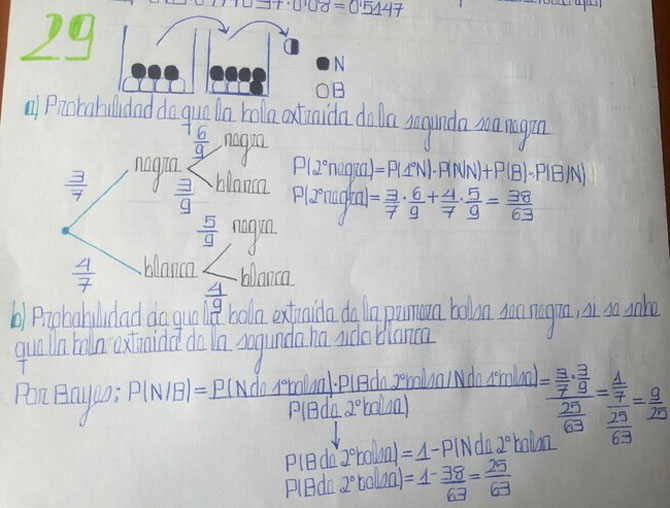 ·0'08=0'5147
29
N
B
a) Probabilidad de que la bola extraída de la segunda sea negra
6/9 negra
negra
3/7
3/9 blanca
P(2ºnegra)=P(1ºN)·P(N/N)+P(B)·P(B/N)
P(2ºnegra)=3/7·6/9+4/7·5/9=38/63
5/9 negra
4/7 blanca
4/9 blanca
b) Probabilidad de que la bola extraída de la primera bolsa sea negra, si se sabe
que la bola extraída de la segunda ha sido blanca
Por Bayes: P(N/B)=P(N de 1ºbolsa)·P(B de 2ºbolsa/N de 1ºbolsa)/P(B de 2ºbolsa)=(3/7·3/9)/(25/63)=(1/7)/(25/63)=9/25
P(B de 2ºbolsa)=1-P(N de 2ºbolsa
P(B de 2ºbolsa)=1-38/63=25/63